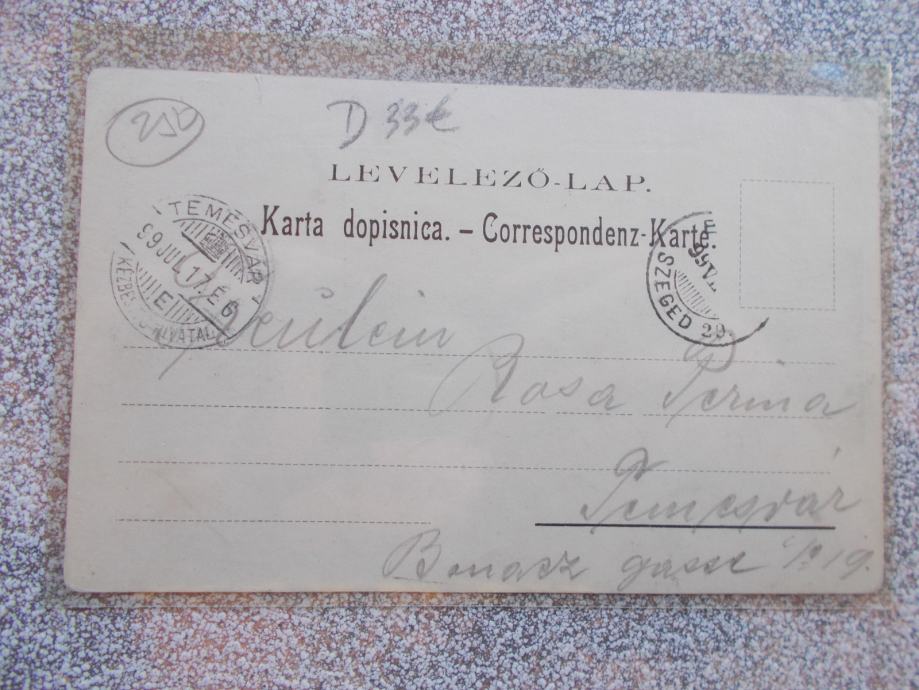 250
D 33€
LEVELEZŐ-LAP.
Karta dopisnica. – Correspondenz-Karte.
TEMESVÁR
99 JUL 17 É 6
SZEGED 29
Fräulein
Rosa Perina
Temesvár
Bonacz gasse 19.